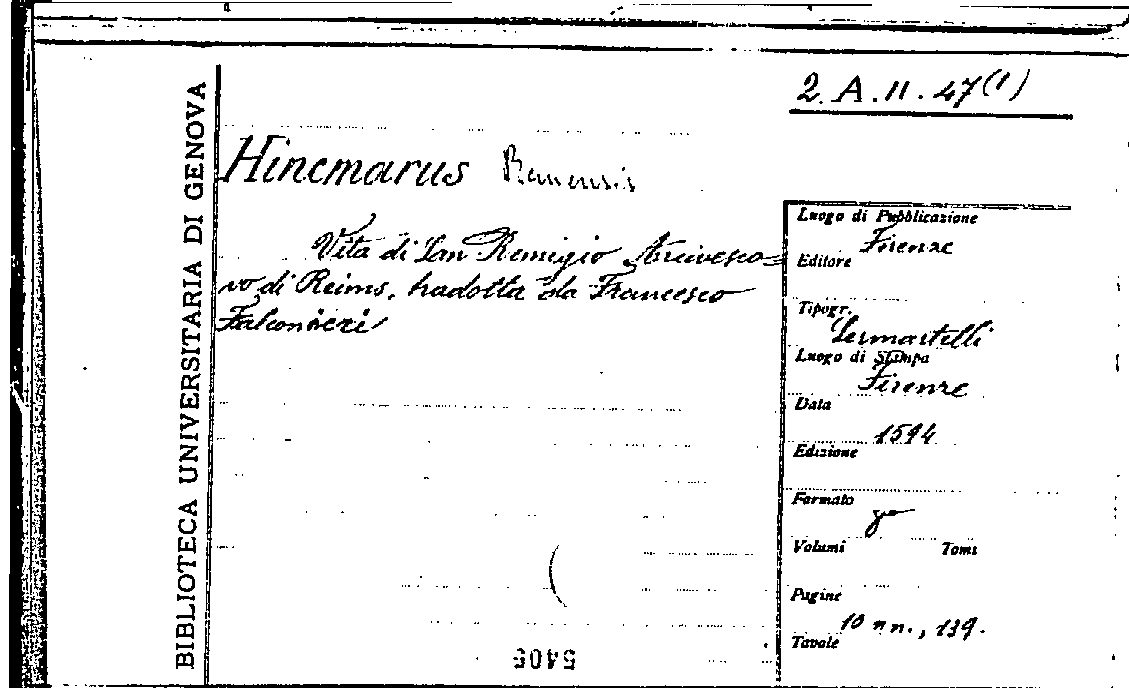 2. A. 11. 47(1)
BIBLIOTECA UNIVERSITARIA DI GENOVA
Hincmarus Remensis
Vita di San Remigio Arcivesco=
vo di Reims, tradotta da Francesco
Falconieri
Luogo di Pubblicazione
Firenze
Editore
Tipogr.
Sermartelli
Luogo di Stampa
Firenze
Data
1594
Edizione
Formato
8°
Volumi Tomi
Pagine
10 nn., 139.
Tavole